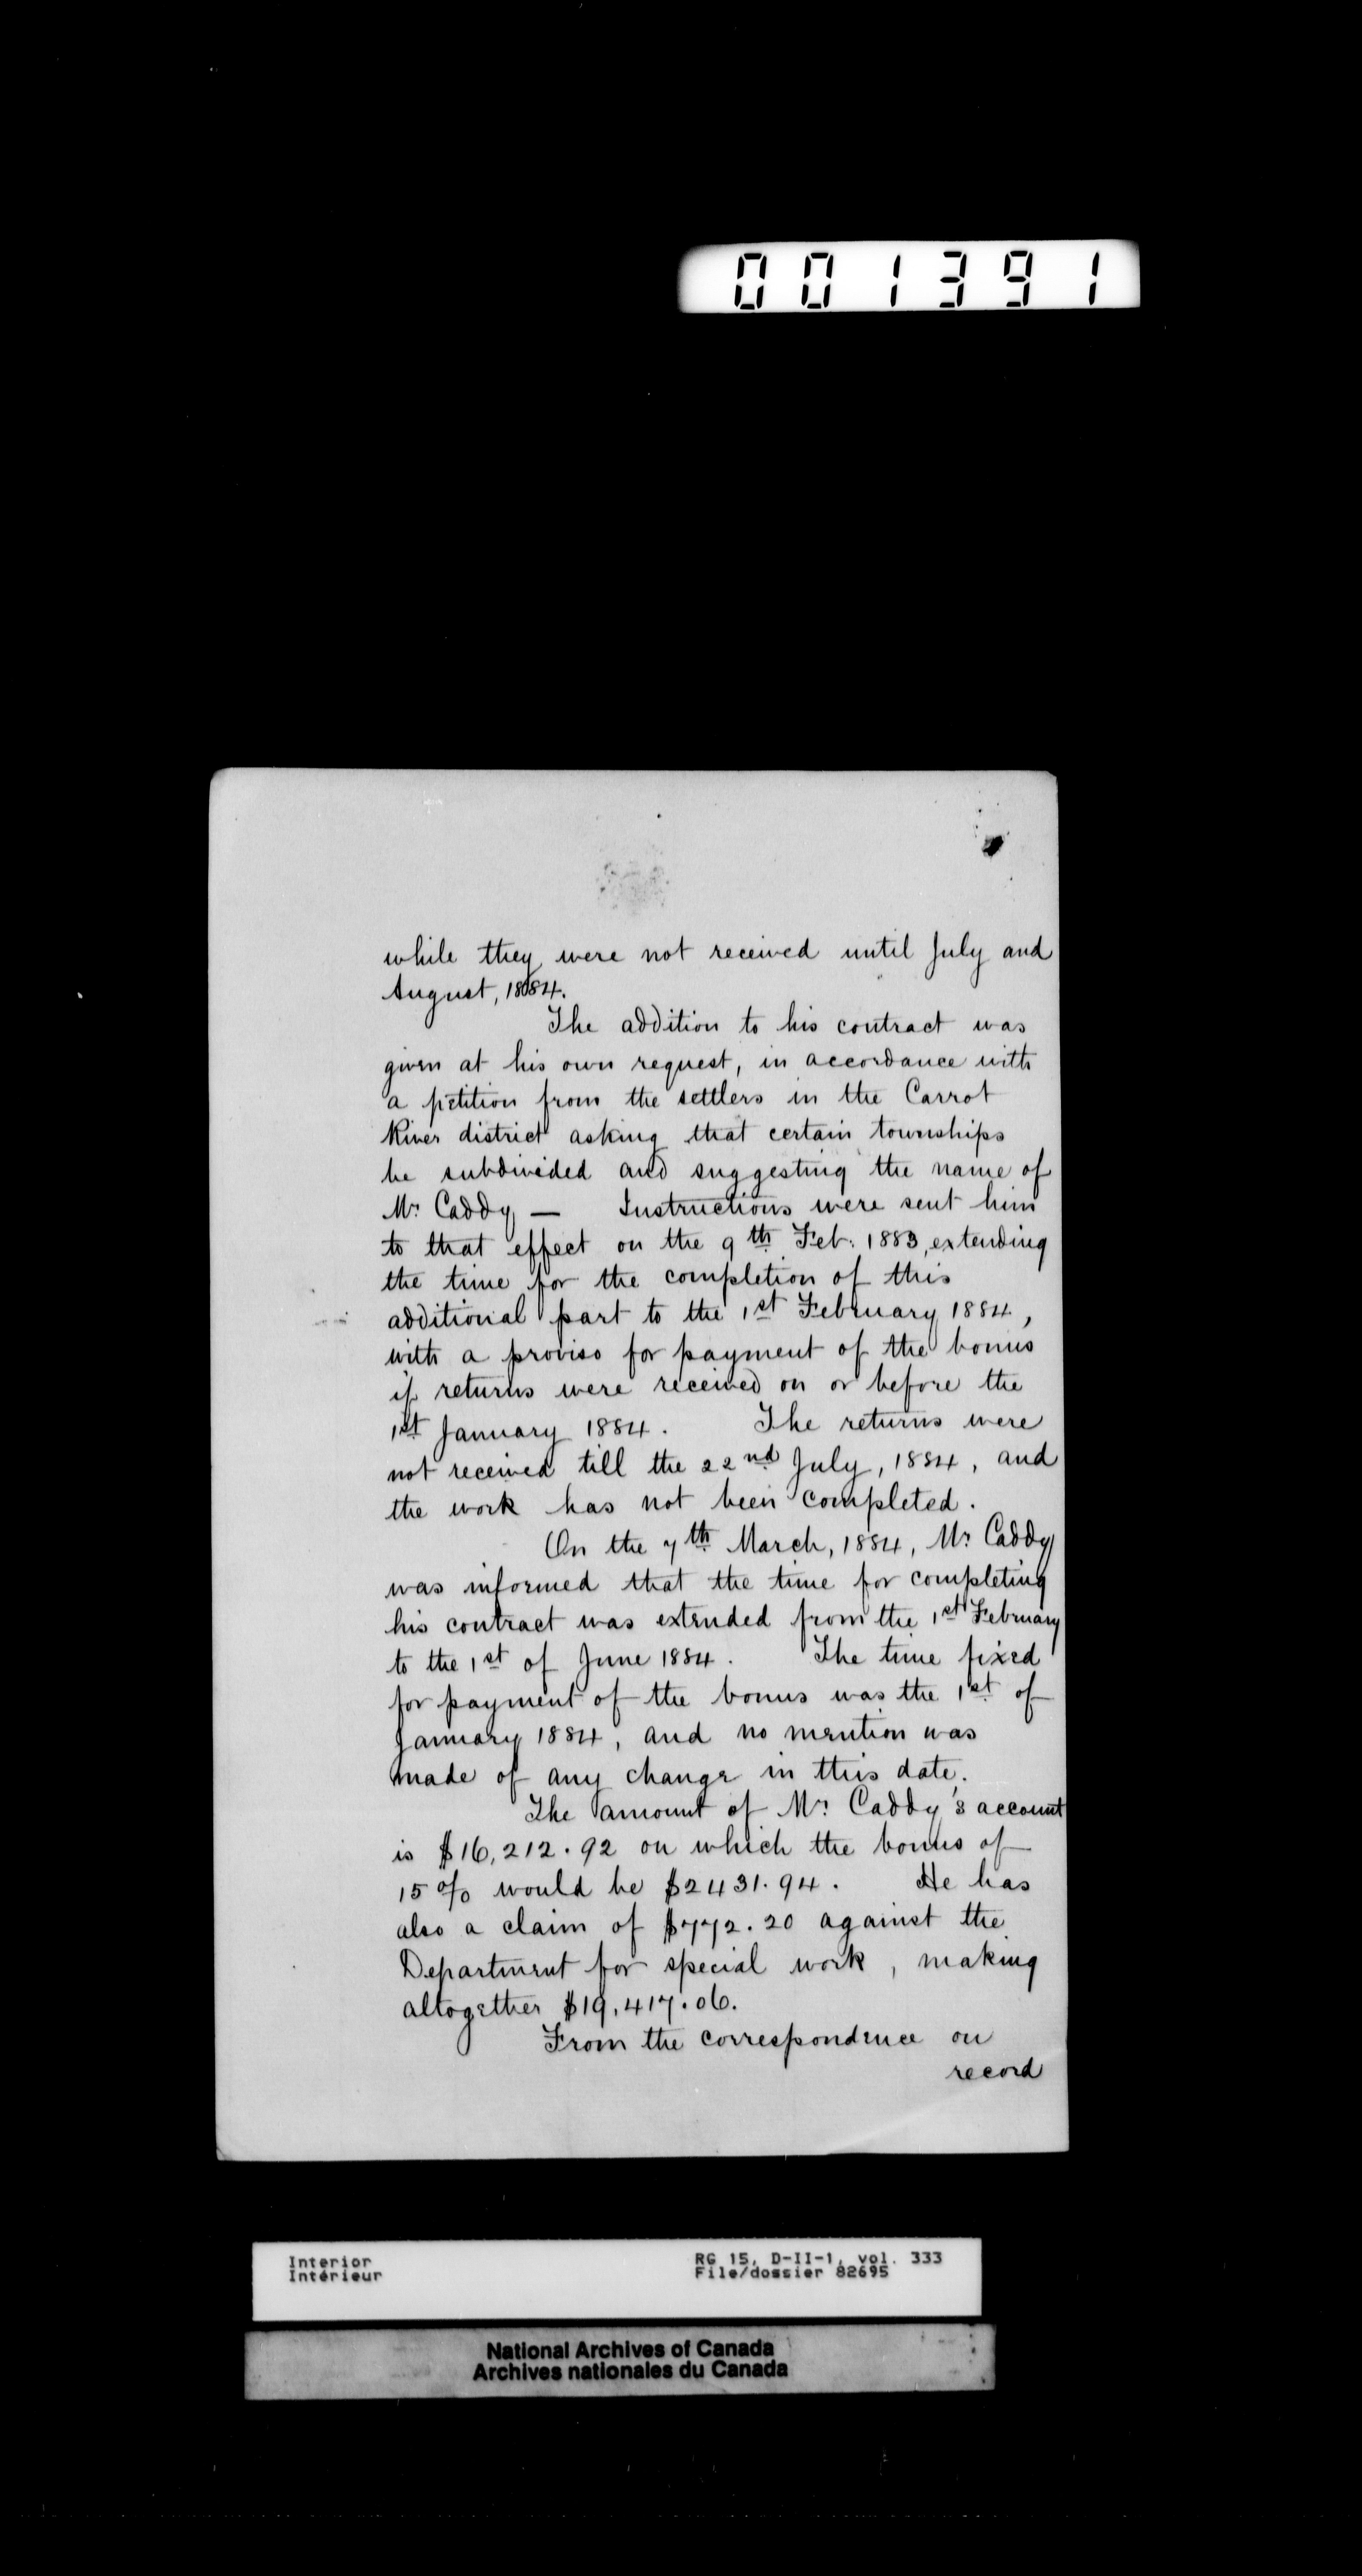 001391
while they were not received until July and
August, 1884.
The addition to his contract was
given at his own request, in accordance with
a petition from the settlers in the Carrot
River district asking that certain townships
be subdivided and suggesting the name of
Mr. Caddy — Instructions were sent him
to that effect on the 9th Feb. 1883, extending
the time for the completion of this
additional part to the 1st February 1884,
with a proviso for payment of the bonus
if returns were received on or before the
1st January 1884. The returns were
not received till the 22nd July, 1884, and
the work has not been completed.
On the 7th March, 1884, Mr. Caddy
was informed that the time for completing
his contract was extended from the 1st February
to the 1st of June 1884. The time fixed
for payment of the bonus was the 1st of
January 1884, and no mention was
made of any change in this date.
The amount of Mr. Caddy's account
is $16,212.92 on which the bonus of
15% would be $2431.94. He has
also a claim of $772.20 against the
Department for special work, making
altogether $19,417.06.
From the correspondence on
record
Interior RG 15, D-II-1, vol. 333
Intérieur File/dossier 82695
National Archives of Canada
Archives nationales du Canada